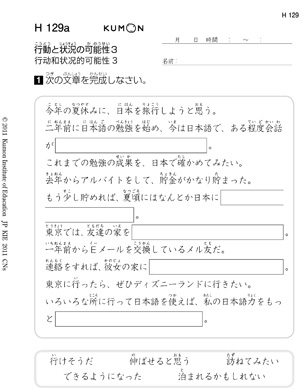 H 129
H 129a
KUMON
月 日 時間 : ～ :
行動と状況の可能性3
行动和状况的可能性 3
名前
1 次の文章を完成しなさい。
今年の夏休みに、日本を旅行しようと思う。
二年前に日本語の勉強を始め、今は日本語で、ある程度会話
が 。
これまでの勉強の成果を、日本で確かめてみたい。
去年からアルバイトをして、貯金がかなり貯まった。
もう少し貯めれば、夏頃にはなんとか日本に
。
東京では、友達の家を 。
一年前からEメールを交換しているメル友だ。
連絡をすれば、彼女の家に 。
東京に行ったら、ぜひディズニーランドに行きたい。
いろいろな所に行って日本語を使えば、私の日本語力をもっ
と 。
行けそうだ 伸ばせると思う 訪ねてみたい
できるようになった 泊まれるかもしれない
© 2011 Kumon Institute of Education JP KIE 2011 CNs